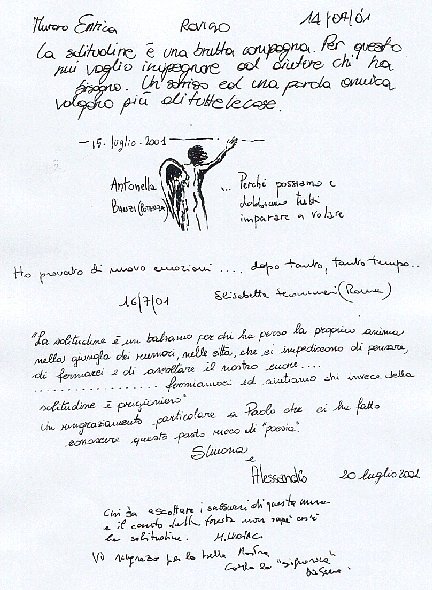 Muraro Enrica Rovigo 14/07/01
La solitudine è una brutta compagna. Per questo
mi voglio impegnare ad aiutare chi ha
bisogno. Un sorriso ed una parola amica
valgono più di tutte le cose.
— 15 luglio 2001 —
Antonella
... Perché possiamo e
dobbiamo tutti
imparare a volare
Ho provato di nuovo emozioni .... dopo tanto, tanto tempo..
16/7/01 Elisabetta (Roma)
"La solitudine è un balsamo per chi ha perso la propria anima
nella giungla dei rumori, nelle città, che ci impediscono di pensare,
di fermarci e di ascoltare il nostro cuore....
.................... fermiamoci ed aiutiamo chi invece della
solitudine è prigioniero"
Un ringraziamento particolare a Paolo che ci ha fatto
conoscere questo posto ricco di "poesia".
Simona
e
Alessandro 20 luglio 2001
Chi sa ascoltare i sussurri di questa
e il canto della foresta non sa cos'è
la solitudine.
Vi ringrazio per la bella
con la "signora"